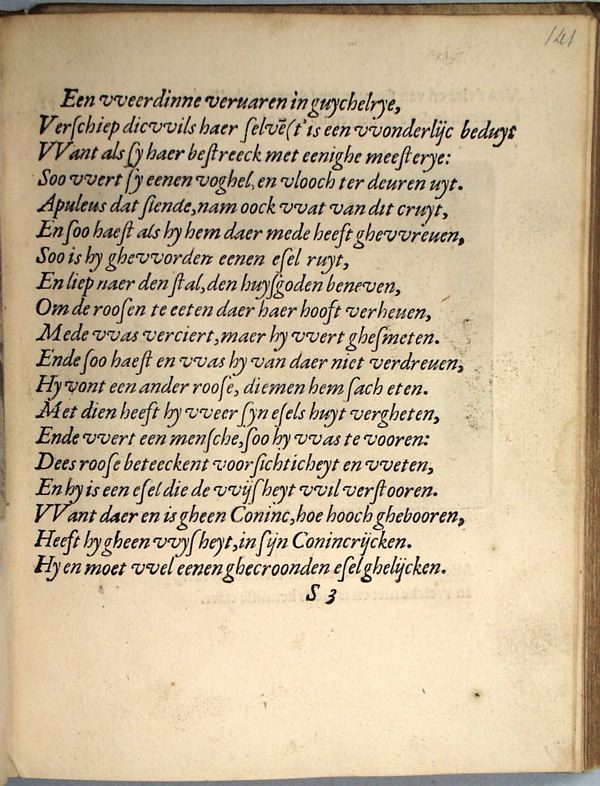 141
Een vveerdinne veruaren in guychelrye,
Verſchiep dicvvils haer ſelvē (t'is een vvonderlijc beduyt
VVant als ſy haer beſtreeck met eenighe meeſterye:
Soo vvert ſy eenen voghel, en vlooch ter deuren uyt.
Apuleus dat ſiende, nam oock vvat van dit cruyt,
En ſoo haeſt als hy hem daer mede heeft ghevvreuen,
Soo is hy ghevvorden eenen eſel ruyt,
En liep naer den ſtal, den huyſgoden beneven,
Om de rooſen te eeten daer haer hooft verheuen,
Mede vvas verciert, maer hy vvert gheſmeten.
Ende ſoo haeſt en vvas hy van daer niet verdreuen,
Hy vont een ander rooſe, diemen hem ſach eten.
Met dien heeft hy vveer ſyn eſels huyt vergheten,
Ende vvert een menſche, ſoo hy vvas te vooren:
Dees rooſe beteeckent voorſichticheyt en vveten,
En hy is een eſel die de vvijſheyt vvil verſtooren.
VVant daer en is gheen Coninc, hoe hooch ghebooren,
Heeft hy gheen vvyſheyt, in ſijn Conincrijcken.
Hy en moet vvel eenen ghecroonden eſel ghelijcken.
S 3